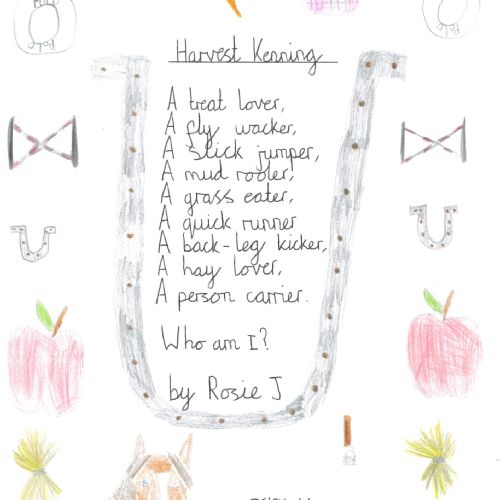 Harvest Kenning
A treat lover,
A fly wacker,
A slick jumper,
A mud rooler,
A grass eater,
A quick runner
A back-leg kicker,
A hay lover,
A person carrier.
Who am I?
by Rosie J